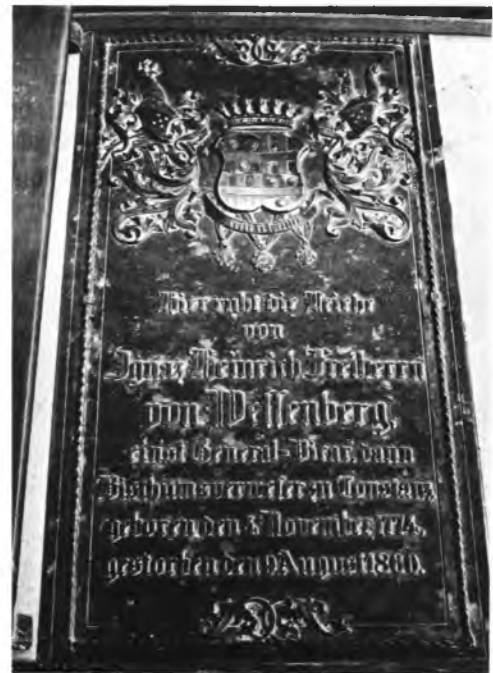 Hier ruht die Leiche
von
Ignaz Heinrich Freiherrn
von Wessenberg,
einst General-Vicar, dann
Bisthumsverweser zu Constanz,
geboren den 4 November 1774,
gestorben den 9 August 1860.